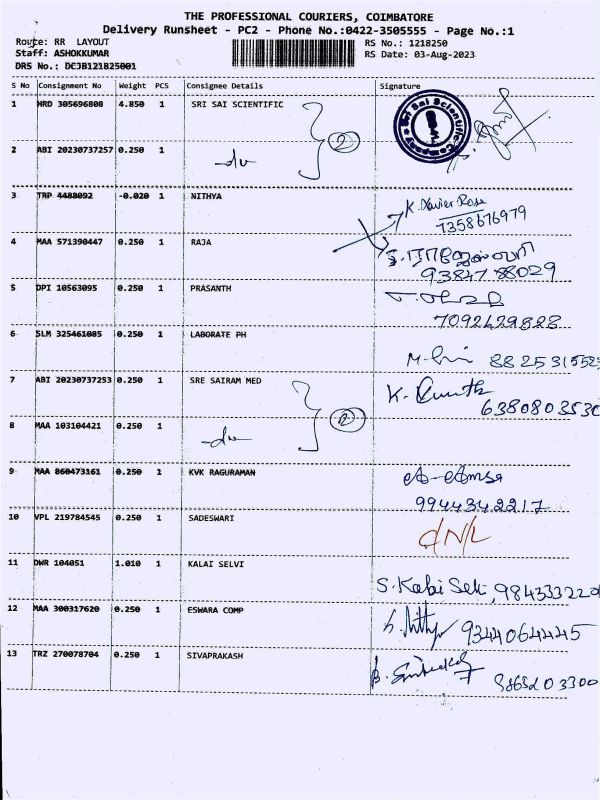 THE PROFESSIONAL COURIERS, COIMBATORE
Delivery Runsheet - PC2 - Phone No.:0422-3505555 - Page No.:1
Route: RR LAYOUT
RS No.: 1218250
Staff: ASHOKKUMAR
RS Date: 03-Aug-2023
DRS No.: DCJB121825001
S No Consignment No Weight PCS Consignee Details Signature
1 HRD 305696808 4.850 1 SRI SAI SCIENTIFIC
Sri Sai Scientific Company
2
2 ABI 20230737257 0.250 1
3 TRP 4488092 -0.020 1 NITHYA
K. Xavier Rose
7358676979
4 MAA 571390447 0.250 1 RAJA
9384788029
5 DPI 10563095 0.250 1 PRASANTH
7092429828
6 SLM 325461085 0.250 1 LABORATE PH
8825315523
7 ABI 20230737253 0.250 1 SRE SAIRAM MED
K.
6380803530
2
8 MAA 103104421 0.250 1
9 MAA 860473161 0.250 1 KVK RAGURAMAN
9944342217
10 VPL 219784545 0.250 1 SADESWARI
D/N/L
11 DWR 104051 1.010 1 KALAI SELVI
S. Kalai Selvi, 984333220
12 MAA 300317620 0.250 1 ESWARA COMP
9344064445
13 TRZ 270078704 0.250 1 SIVAPRAKASH